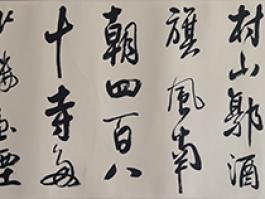 村山郭酒
旗風南
朝四百八
十寺多
少樓臺煙